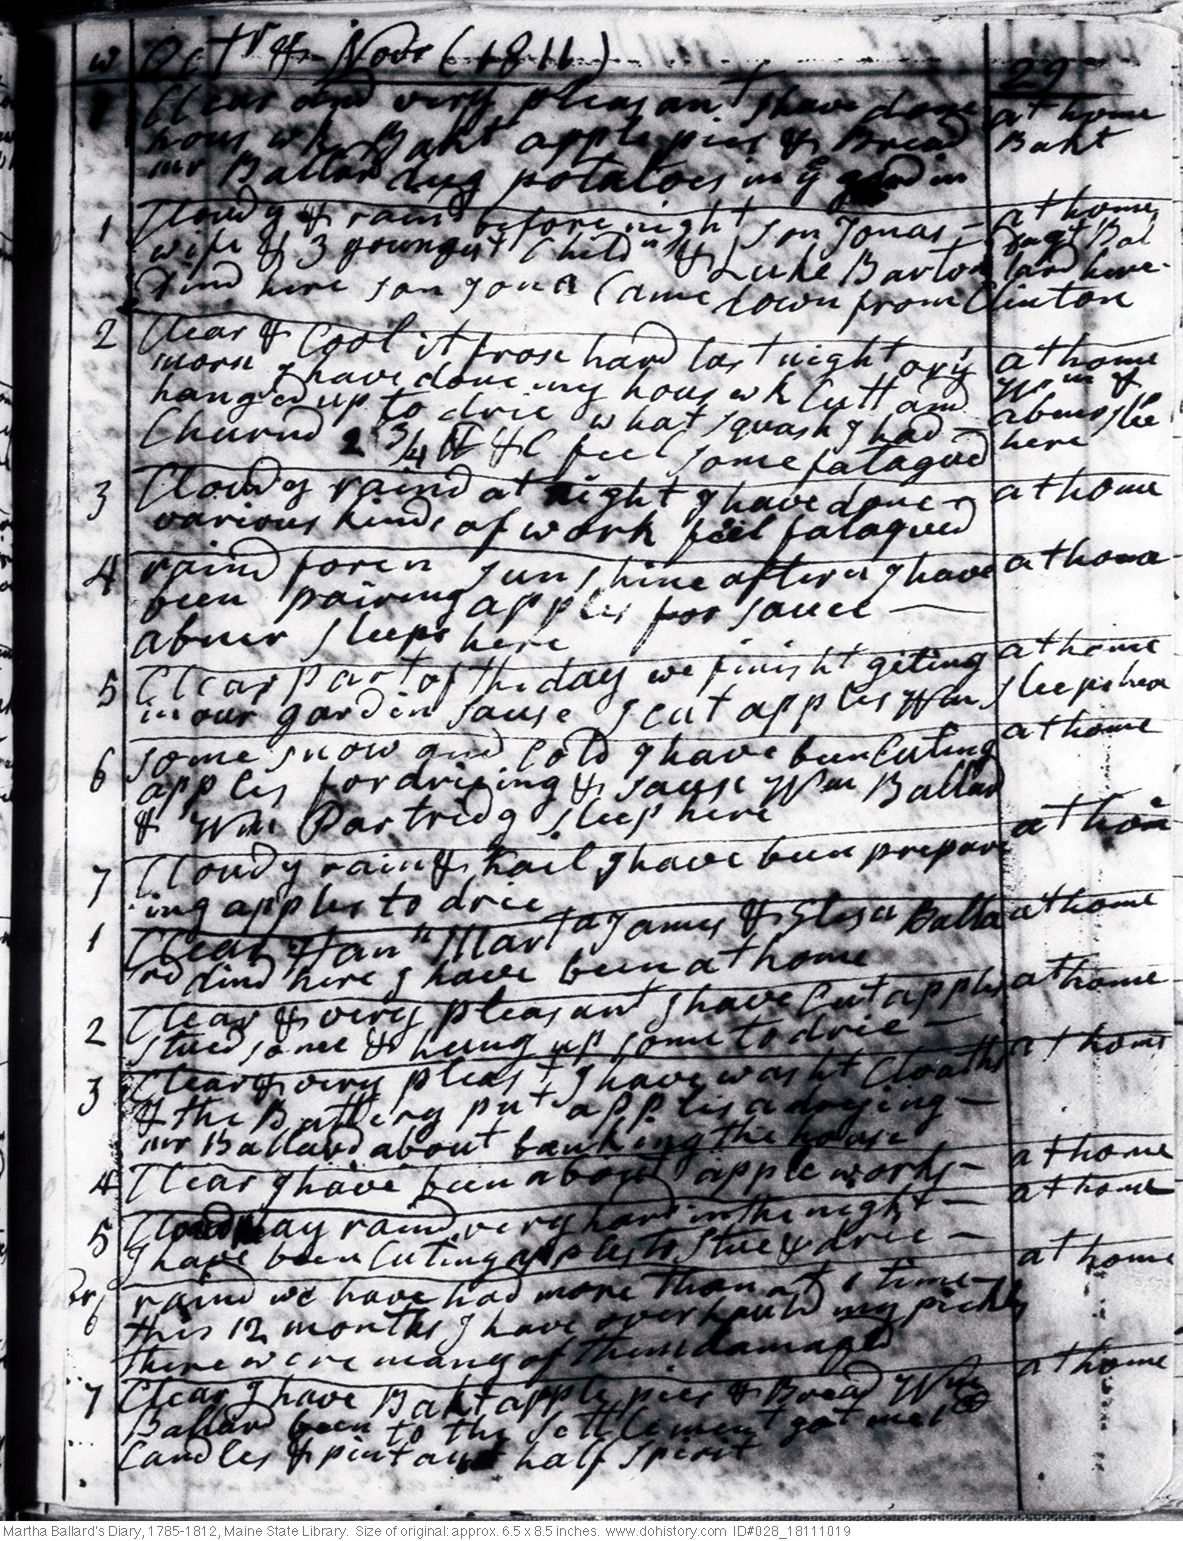 w Octr & Novr (1811) 29
7 Clear and very pleasant I have done at home
hous wk Bakt apple pies & Bread Bakt
mr Ballard dug potatoes in ye gardin
1 Cloudy & rain before night son Jonas at home
wife & 3 youngest Childn & Luke Barton
Dind here son Jona Came down from Clinton
2 Clear & Cool it froze hard last night at home
morn I have done my hous wk Cutt and
hanged up to drie what squash I had
Churnd 2 3/4 lb &C feel some fatagued here
3 Cloudy raind at night I have done at home
various kinds of work feel fatagued
4 raind foren Sun shine aftern I have at home
been pairing apples for sauce
abner sleeps here
5 Clear Part of the day we finisht giting at home
in our gardin sause I cut apples Wm sleeps hea
6 some snow and Cold I have been Cuting at home
apples for driing & sause Wm Ballard
& Wm Partridg sleep here
7 Cloudy rain & hail I have been prepare at home
ing apples to drie
1 Clear Hanh Marta James & Elisa Balla at home
rd dind here I have been at home
2 Clear & very pleasant I have Cut apples at home
stued some & hung up some to drie
3 Clear & very pleast I have washt Cloaths at home
& the Buttery put apples a drying
mr Ballard about banking the house
4 Clear I have been about apple work at home
5 Cloudy day raind very hard in the night at home
I have been Cuting apples to stue & drie
6 raind we have had more than at 1 time at home
this 12 months I have overhauld my pickls
there were many of them damaged
7 Clear I have Bakt apple pies & Bread Wm at home
Ballard been to the settlement got me 1 lb
Candles & pint and half spirit
Martha Ballard's Diary, 1785-1812, Maine State Library. Size of original: approx. 6.5 x 8.5 inches. www.dohistory.com ID#028_18111019